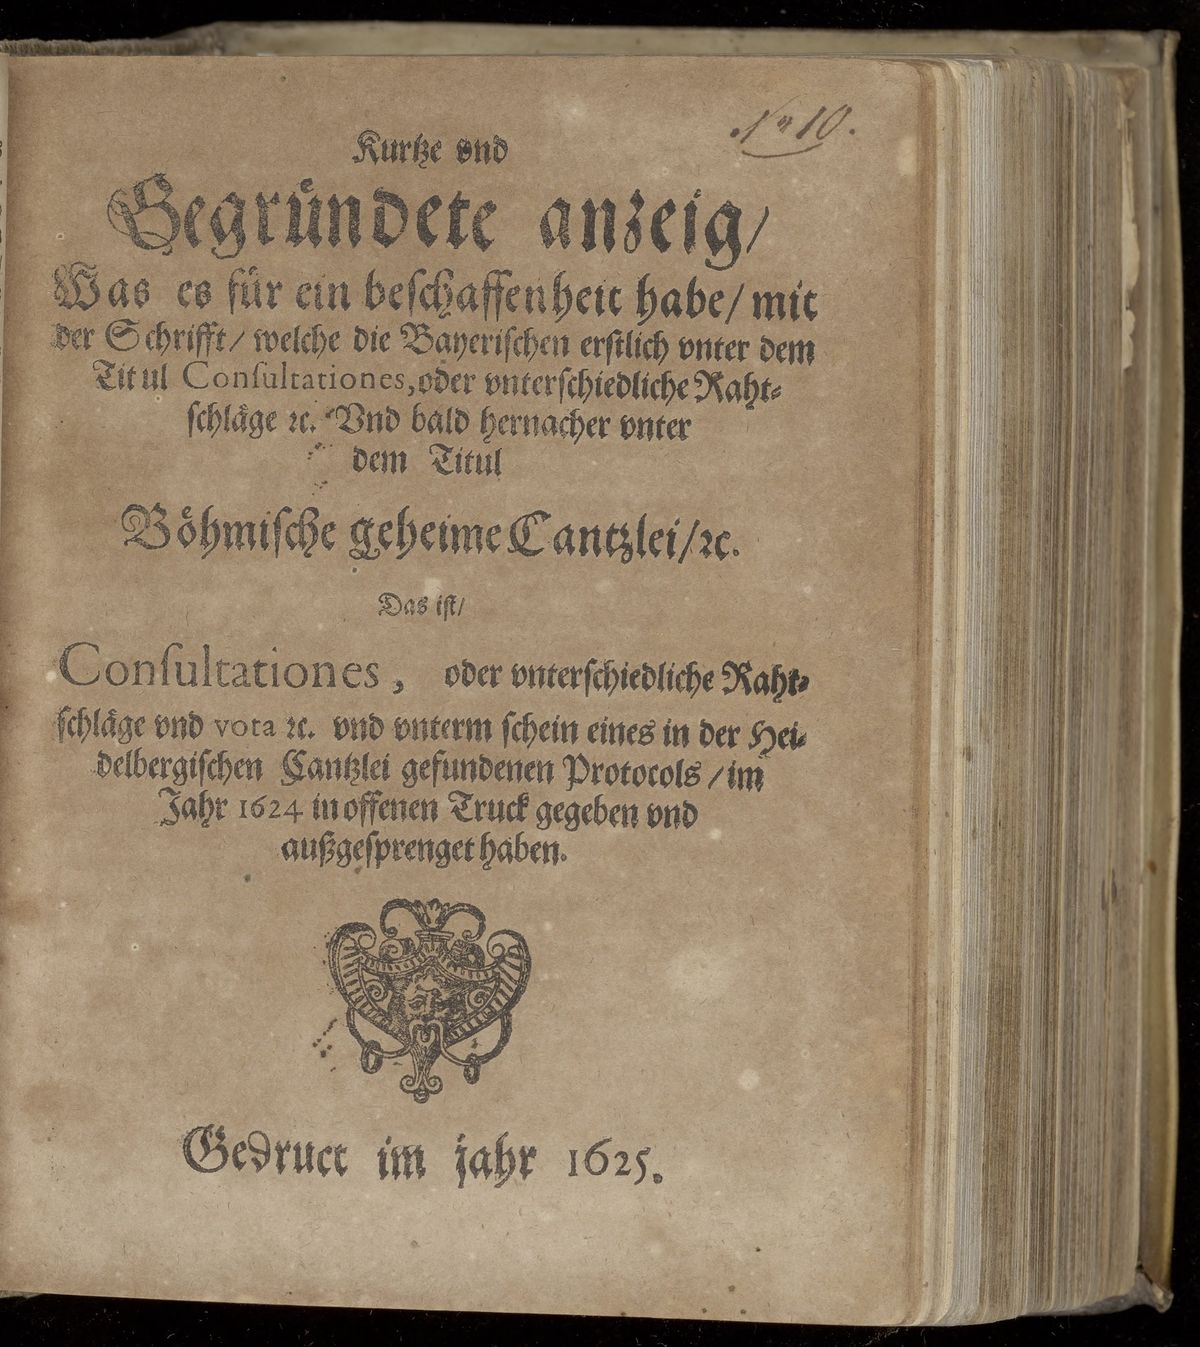 No 10.
Kurtze vnd
Gegründete anzeig/
Was es für ein beschaffenheit habe/ mit
der Schrifft/ welche die Bayerischen erstlich vnter dem
Titul Consultationes, oder vnterschiedliche Raht-
schläge ꝛc. Vnd bald hernacher vnter
dem Titul
Böhmische geheime Cantzlei/ꝛc.
Das ist/
Consultationes, oder vnterschiedliche Raht-
schläge vnd vota ꝛc. vnd vnterm schein eines in der Hei-
delbergischen Cantzlei gefundenen Protocols / im
Jahr 1624 in offenen Truck gegeben vnd
außgesprenget haben.
Gedruct im jahr 1625.